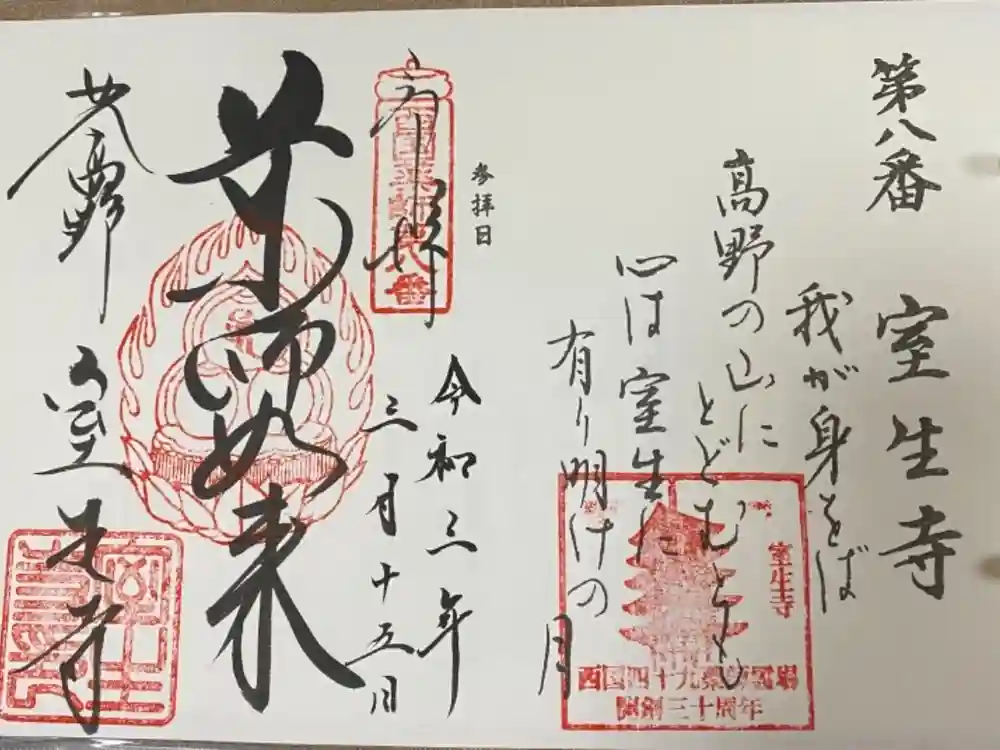 第八番 室生寺
我が身をば
高野の山に
とどむとも
心は室生に
有り明けの月
参拝日
令和三年
三月十五日
奉拝
西国薬師第八番
薬師如来
女人高野
室生寺
室生寺
西国四十九薬師霊場
開創三十周年